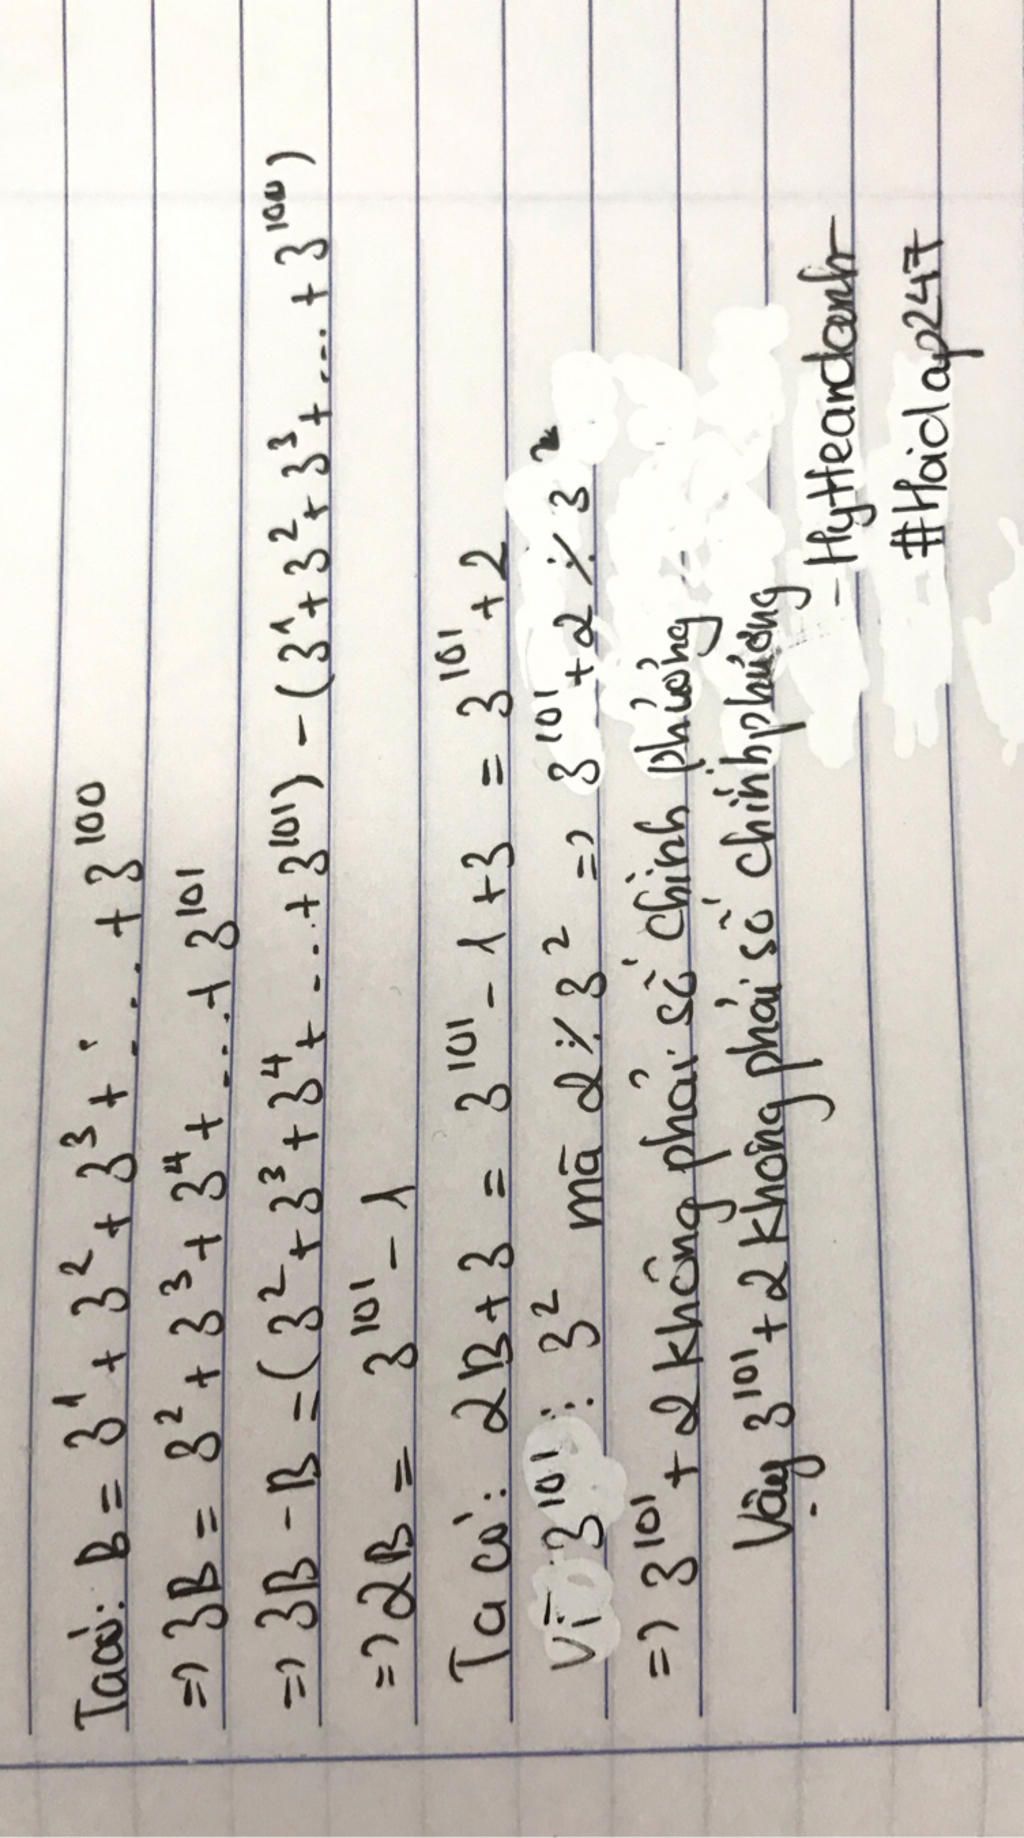 Ta có: B = 3¹ + 3² + 3³ + ... + 3¹⁰⁰
=> 3B = 3² + 3³ + 3⁴ + ... + 3¹⁰¹
=> 3B - B = (3² + 3³ + 3⁴ + ... + 3¹⁰¹) - (3¹ + 3² + 3³ + ... + 3¹⁰⁰)
=> 2B = 3¹⁰¹ - 1
Ta có: 2B + 3 = 3¹⁰¹ - 1 + 3 = 3¹⁰¹ + 2
Vì 3¹⁰¹ ⋮ 3² mā 2 ⋮̸ 3² => 3¹⁰¹ + 2 ⋮̸ 3²
=> 3¹⁰¹ + 2 không phải số chính phương
Vậy 3¹⁰¹ + 2 không phải số chính phương
- HytHeandanh
#Hoidap247